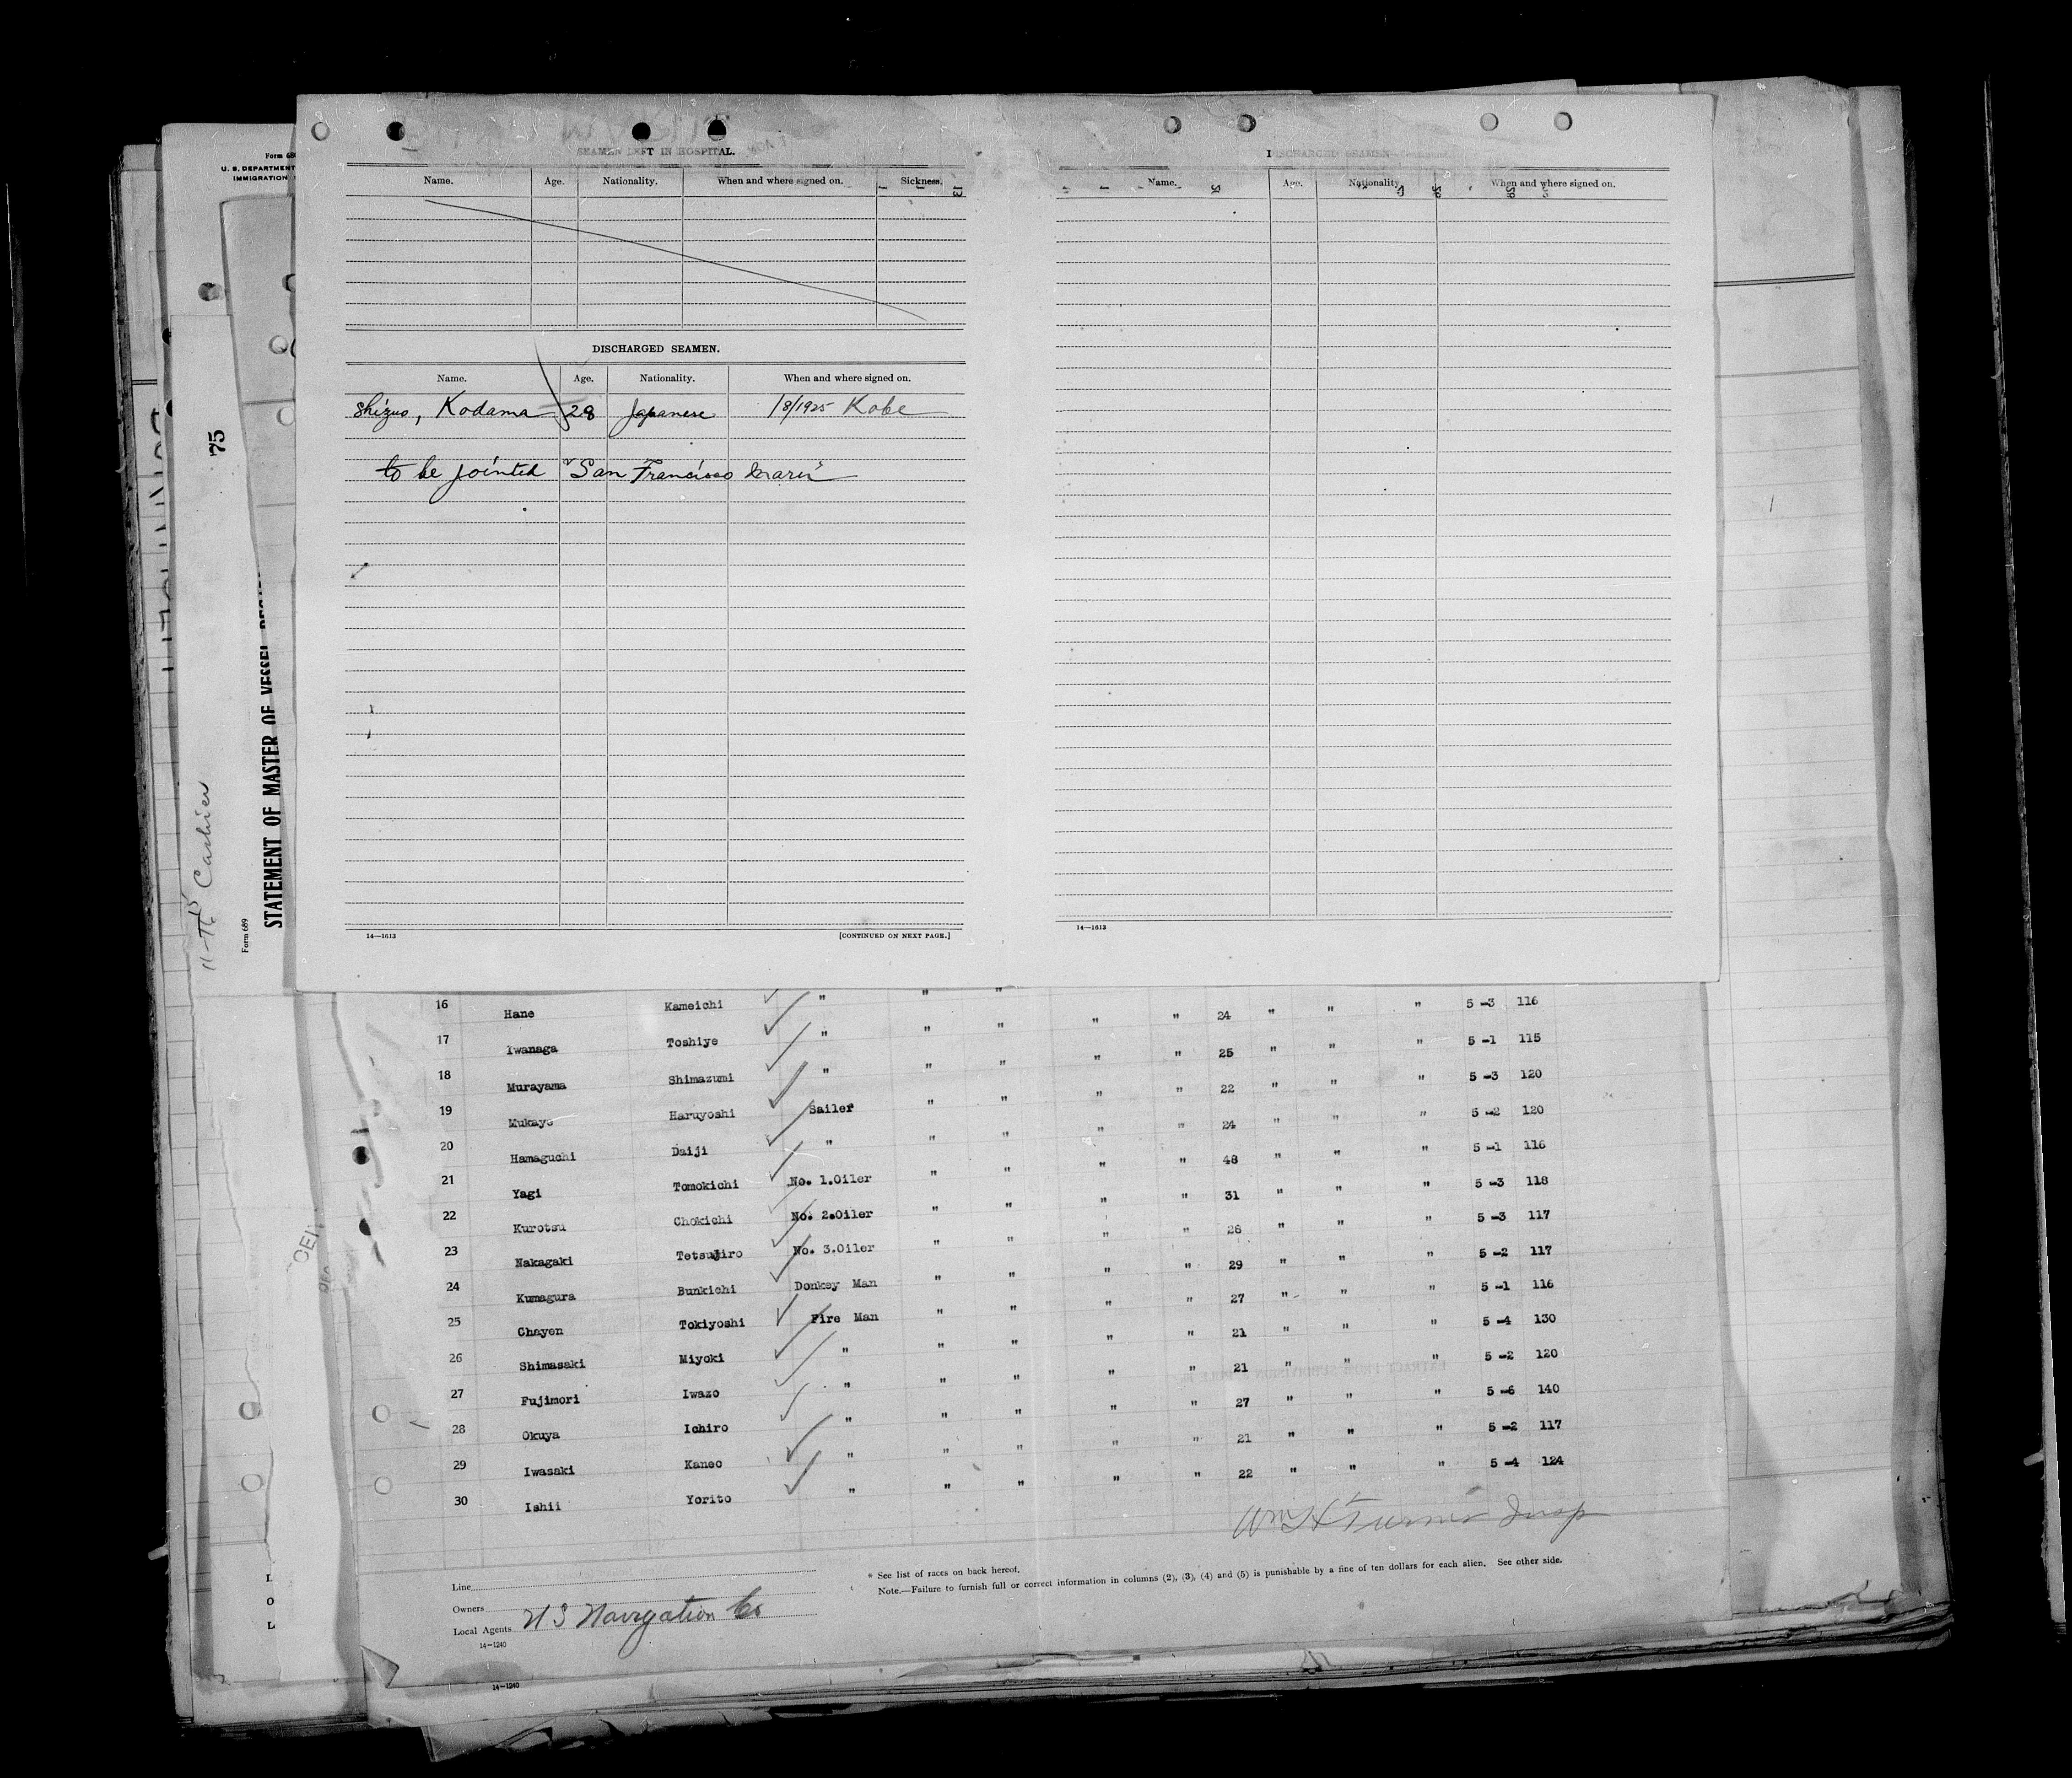 Form 689
U. S. DEPARTMENT
IMMIGRATION
75
11-
Cashier
Form 689
STATEMENT OF MASTER OF VESSEL
SEAMEN LEFT IN HOSPITAL.
Name. Age. Nationality. When and where signed on. Sickness.
DISCHARGED SEAMEN.
Name. Age. Nationality. When and where signed on.
Shizuo, Kodama 28 Japanese 18/1925 Kobe
to be jointed "San Francisco Maru"
14—1613 [CONTINUED ON NEXT PAGE.]
DISCHARGED SEAMEN—Continued.
Name. Age. Nationality. When and where signed on.
14—1613
16 Hane Kameichi " " " " " 24 " " " 5 -3 116
17 Iwanaga Toshiye " " " " " 25 " " " 5 -1 115
18 Murayama Shimazumi " " " " " 22 " " " 5 -3 120
19 Mukayo Haruyoshi Sailer " " " " 24 " " " 5 -2 120
20 Hamaguchi Daiji " " " " " 48 " " " 5 -1 116
21 Yagi Tomokichi No. 1.Oiler " " " " 31 " " " 5 -3 118
22 Kurotsu Chokichi No. 2.Oiler " " " " 26 " " " 5 -3 117
23 Nakagaki Tetsujiro No. 3.Oiler " " " " 29 " " " 5 -2 117
24 Kumagura Bunkichi Donkey Man " " " " 27 " " " 5 -1 116
25 Chayen Tokiyoshi Fire Man " " " " 21 " " " 5 -4 130
26 Shimasaki Miyoki " " " " " 21 " " " 5 -2 120
27 Fujimori Iwazo " " " " " 27 " " " 5 -6 140
28 Okuya Ichiro " " " " " 21 " " " 5 -2 117
29 Iwasaki Kaneo " " " " " 22 " " " 5 -4 124
30 Ishii Yorito " " "
Wm H Turner Insp
Line
Owners
Local Agents U S Navigation Co
14—1240
* See list of races on back hereof.
Note.—Failure to furnish full or correct information in columns (2), (3), (4) and (5) is punishable by a fine of ten dollars for each alien. See other side.
14—1240